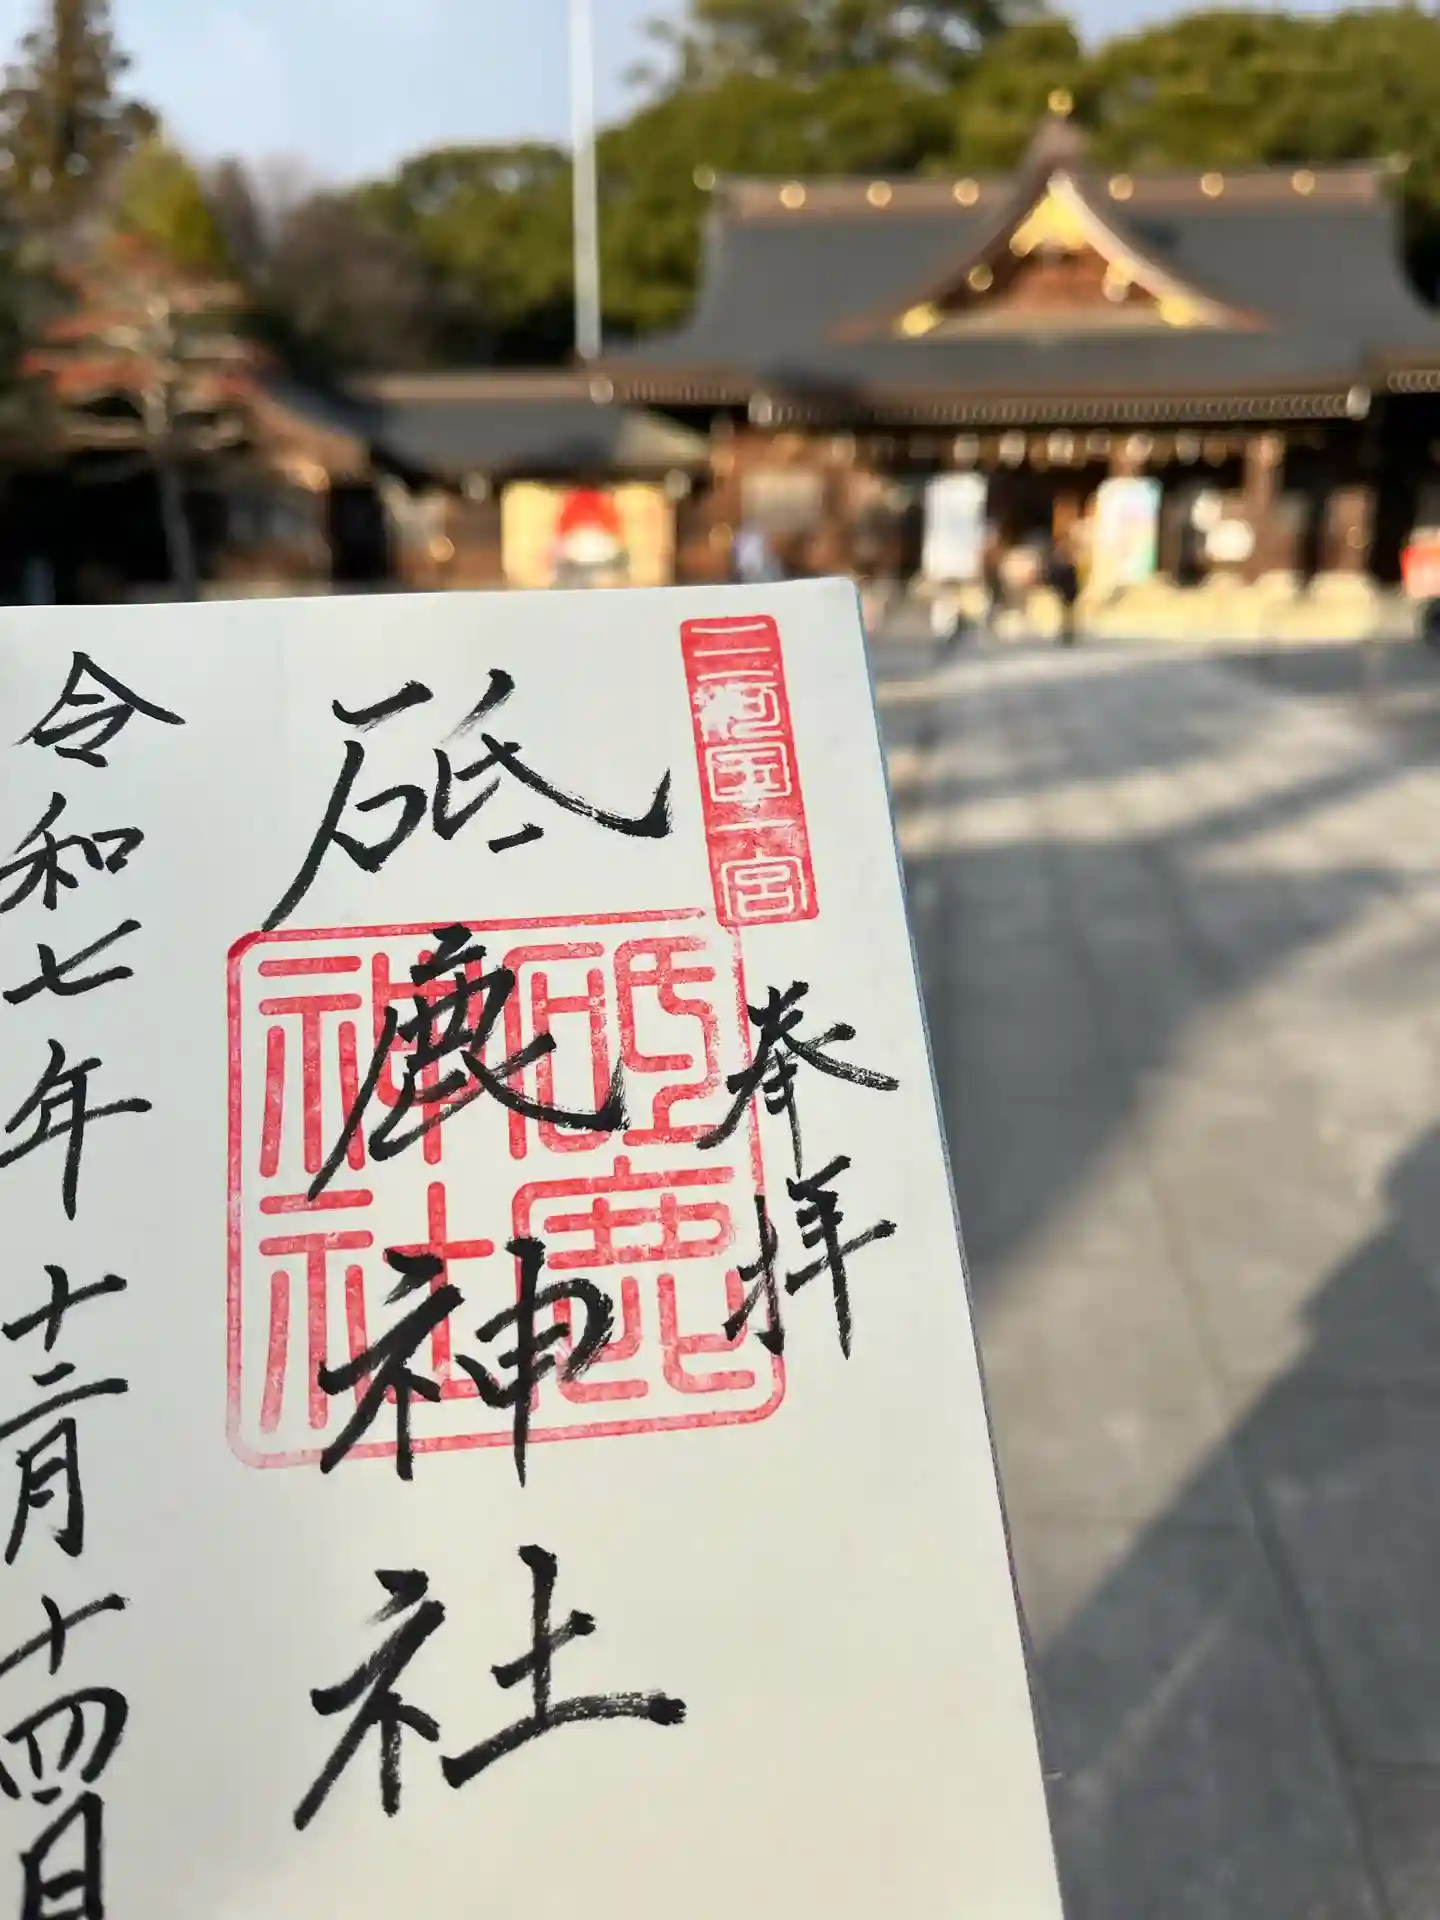 三河国一宮
奉拝
砥鹿神社
砥鹿神社
令和七年十二月十四日